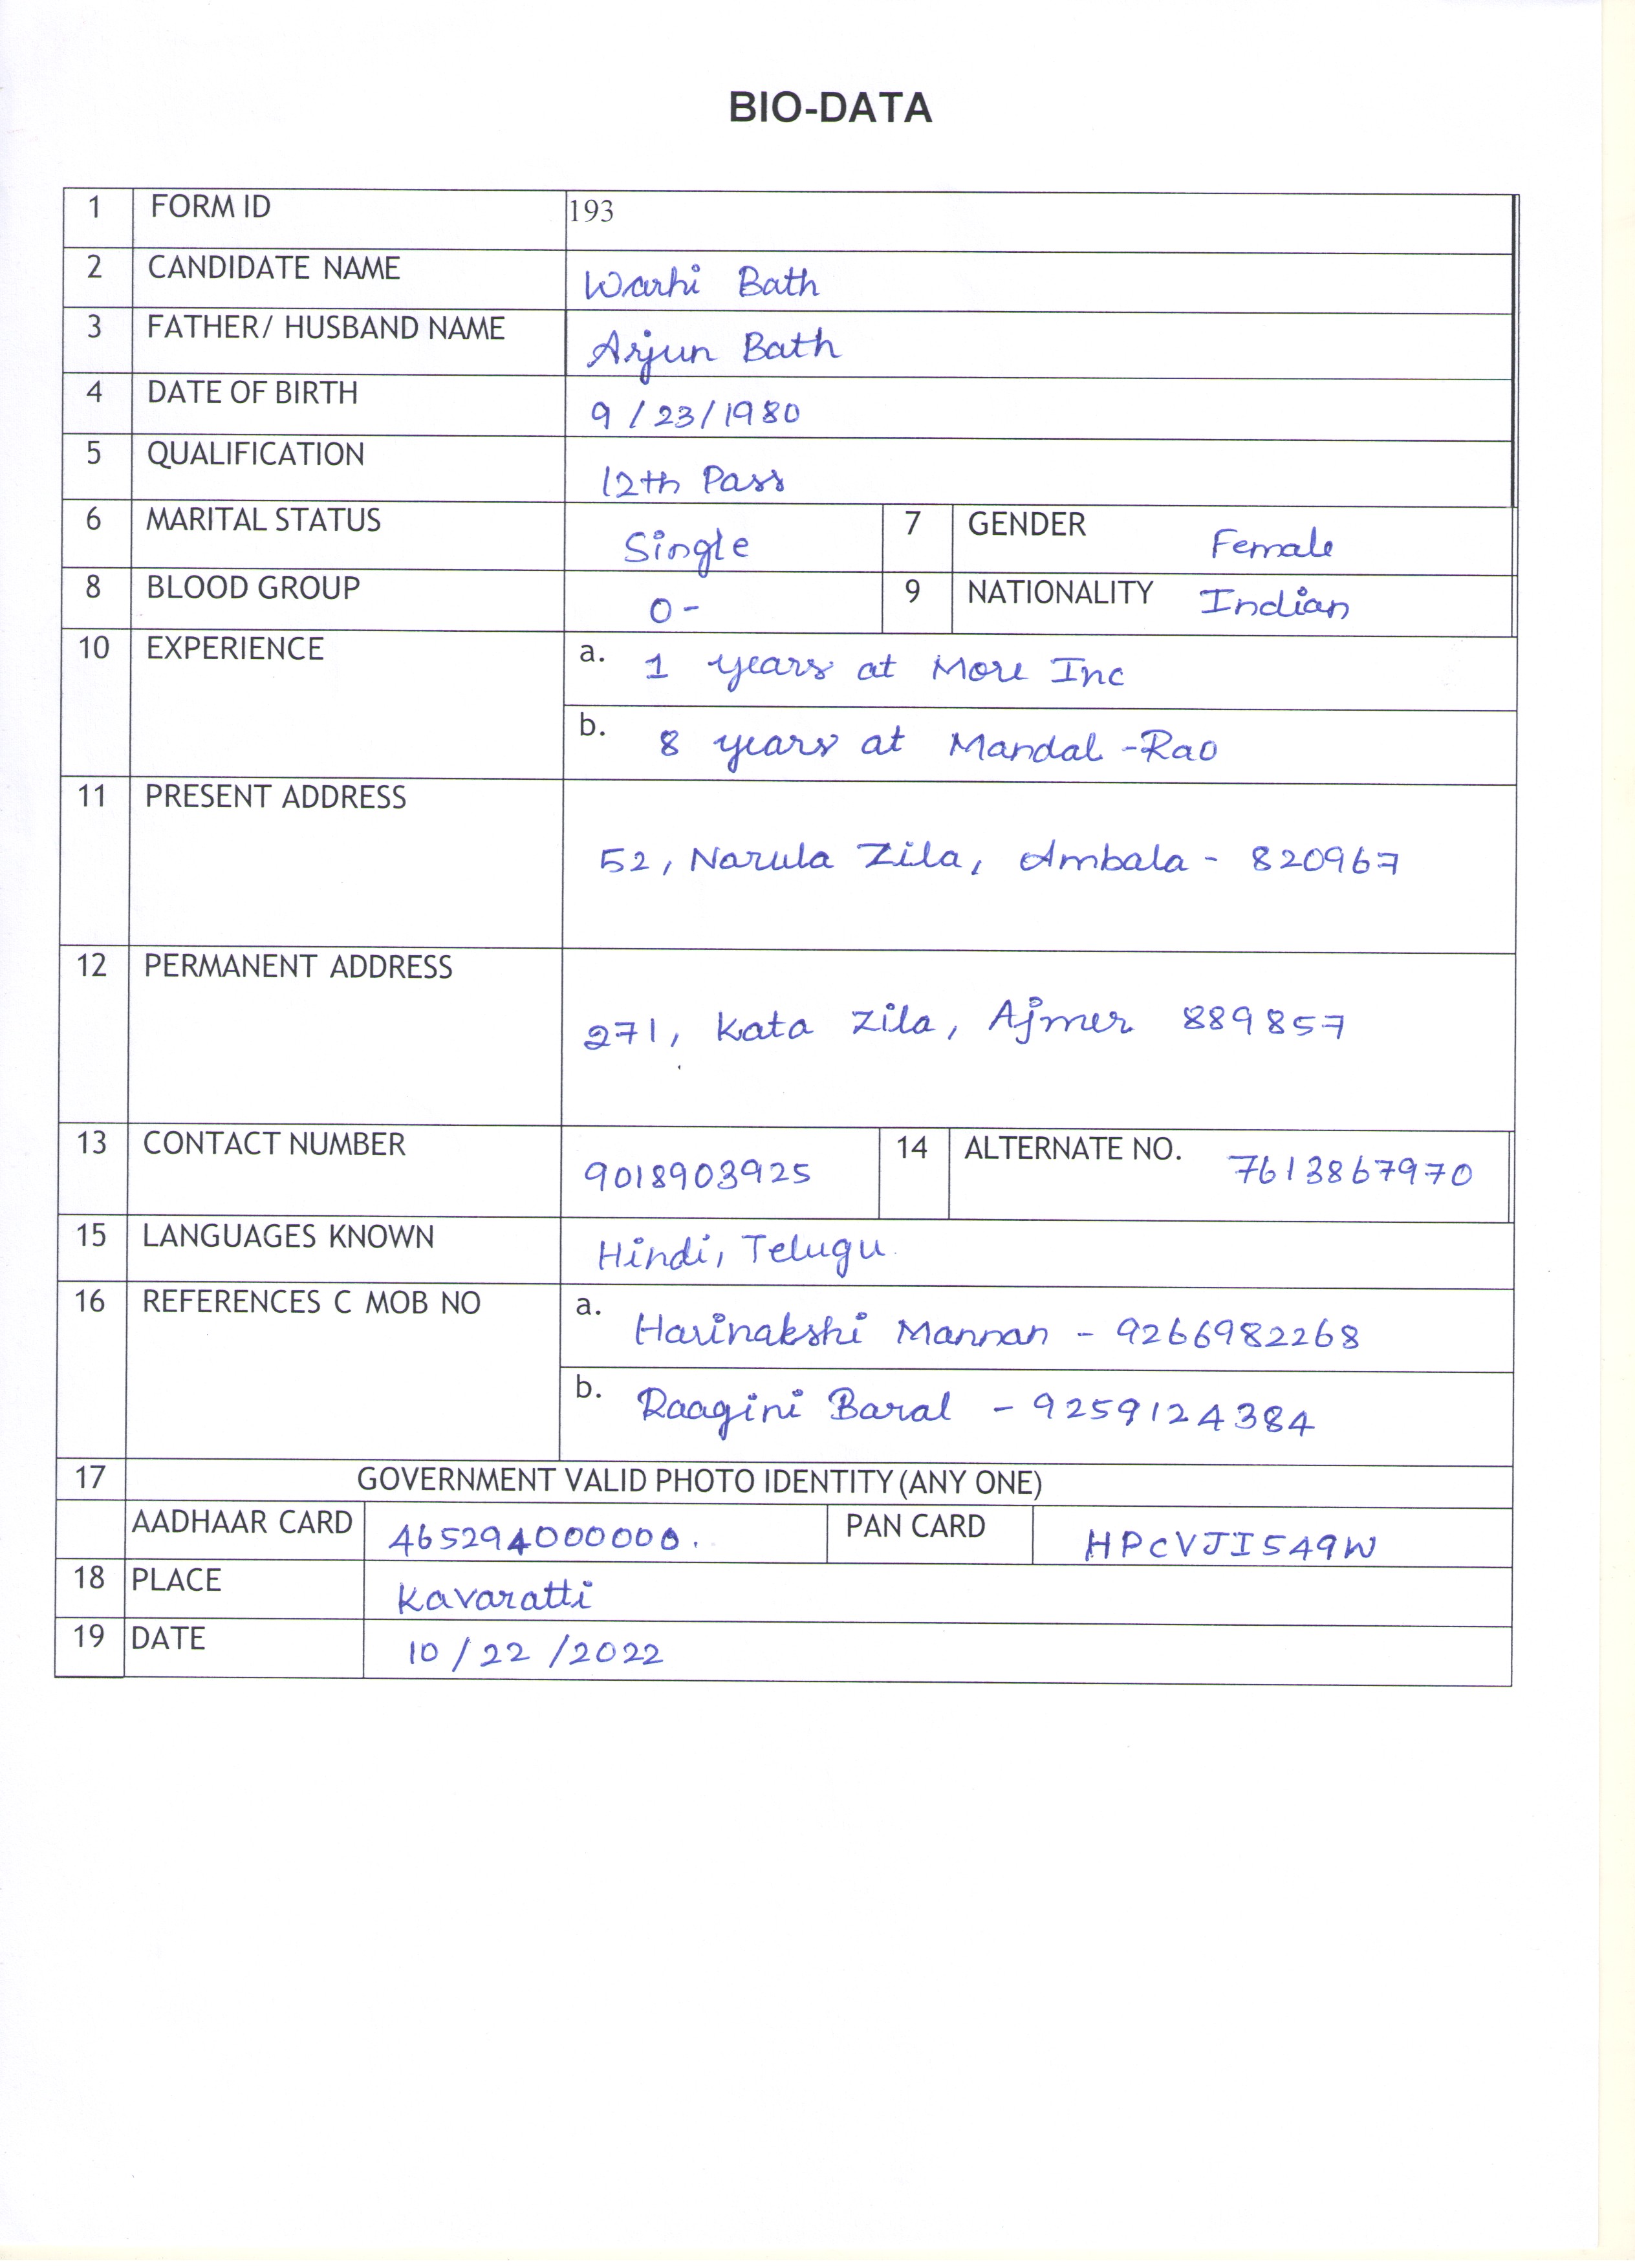 BIO-DATA
1 FORM ID 193
2 CANDIDATE NAME Warhi Bath
3 FATHER/ HUSBAND NAME Arjun Bath
4 DATE OF BIRTH 9/23/1980
5 QUALIFICATION 12th Pass
6 MARITAL STATUS Single 7 GENDER Female
8 BLOOD GROUP O- 9 NATIONALITY Indian
10 EXPERIENCE a. 1 years at More Inc
b. 8 years at Mandal-Rao
11 PRESENT ADDRESS
52, Narula Zila, Ambala - 820967
12 PERMANENT ADDRESS
271, Kata Zila, Ajmer 889857
13 CONTACT NUMBER 9018903925 14 ALTERNATE NO. 7613867970
15 LANGUAGES KNOWN Hindi, Telugu
16 REFERENCES C MOB NO a. Harinakshi Mannan - 9266982268
b. Raagini Baral - 9259124384
17 GOVERNMENT VALID PHOTO IDENTITY (ANY ONE)
AADHAAR CARD 465294000000. PAN CARD HPCVJI549W
18 PLACE Kavaratti
19 DATE 10/22/2022